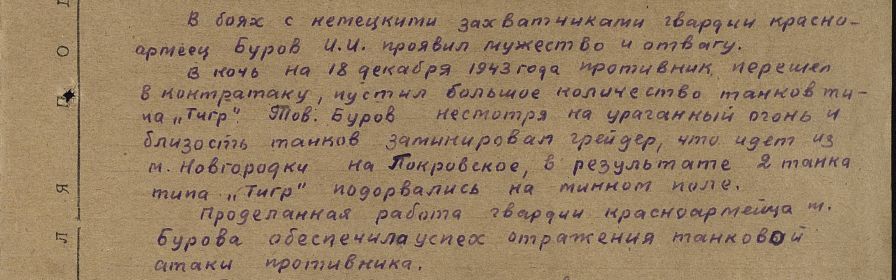 В боях с немецкими захватчиками гвардии красно-
армеец Буров И.И. проявил мужество и отвагу.
В ночь на 18 декабря 1943 года противник перешел
в контратаку, пустил большое количество танков ти-
па „Тигр" Тов. Буров несмотря на ураганный огонь и
близость танков заминировал грейдер, что идет из
м. Новгородки на Покровское, в результате 2 танка
типа „Тигр" подорвались на минном поле.
Проделанная работа гвардии красноармейца т.
Бурова обеспечила успех отражения танковой
атаки противника.